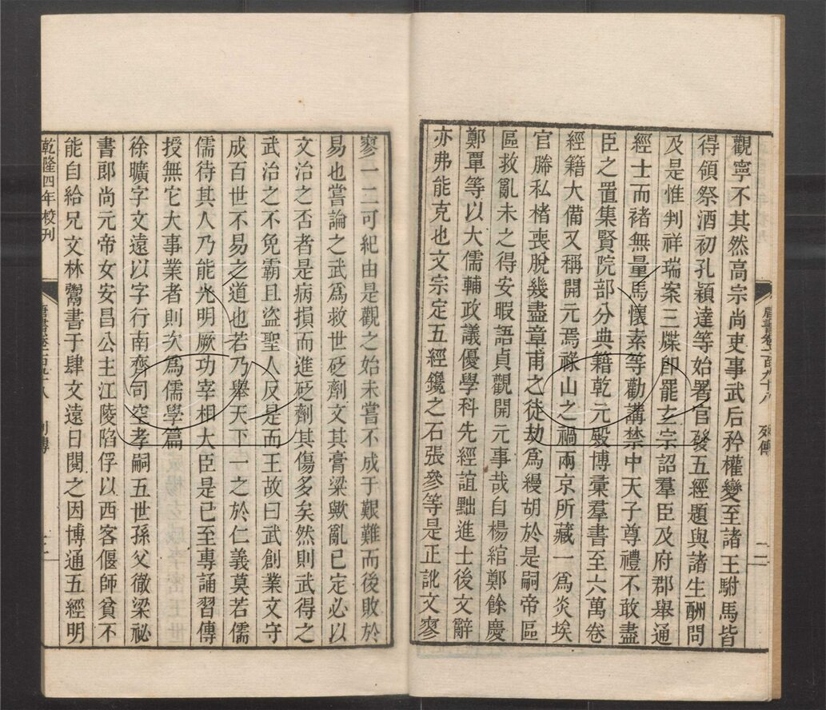 觀寧不其然高宗尚吏事武后矜權變至諸王駙馬皆
得領祭酒初孔穎達等始署官發五經題與諸生酬問
及是惟判祥瑞案三牒卽罷玄宗詔羣臣及府郡舉通
經士而褚無量馬懷素等勸講禁中天子尊禮不敢盡
臣之置集賢院部分典籍乾元殿博彙羣書至六萬卷
經籍大備又稱開元焉祿山之禍兩京所藏一爲炎埃
官幐私楮喪脫幾盡章甫之徒劫爲縵胡於是嗣帝區
區救亂未之得安暇語貞觀開元事哉自楊綰鄭餘慶
鄭覃等以大儒輔政議優學科先經誼黜進士後文辭
亦弗能克也文宗定五經鑱之石張參等是正訛文寥
唐書卷一百九十八 列傳 二
寥一二可紀由是觀之始未嘗不成于艱難而後敗於
易也嘗論之武爲救世砭劑文其膏粱歟亂已定必以
文治之否者是病損而進砭劑其傷多矣然則武得之
武治之不免霸且盜聖人反是而王故曰武創業文守
成百世不易之道也若乃舉天下一之於仁義莫若儒
儒待其人乃能光明厥功宰相大臣是已至專誦習傳
授無它大事業者則次爲儒學篇
徐曠字文遠以字行南齊司空孝嗣五世孫父徹梁祕
書郎尚元帝女安昌公主江陵陷俘以西客偃師貧不
能自給兄文林鬻書于肆文遠日閱之因博通五經明
乾隆四年校刊
唐書卷一百九十八 列傳